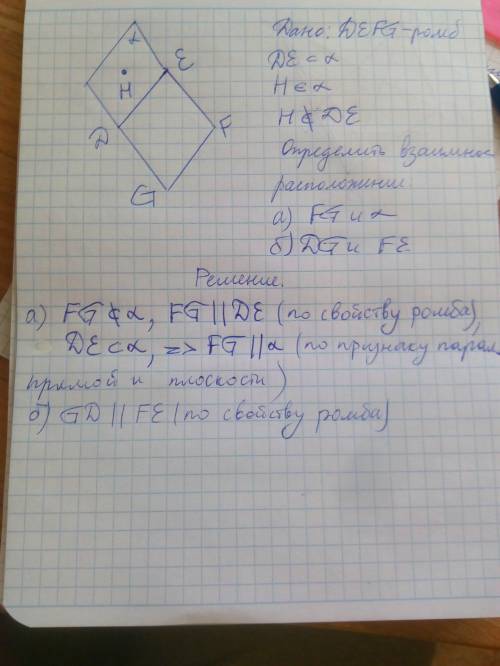 α
E
H
D
F
G
Дано: DEFG-ромб
DE⊂α
H∈α
H∉DE
Определить взаимное
расположение:
а) FG и α
б) DG и FE
Решение.
а) FG⊄α, FG||DE (по свойству ромба),
DE⊂α, => FG||α (по признаку парал.
прямой и плоскости)
б) GD||FE (по свойству ромба)